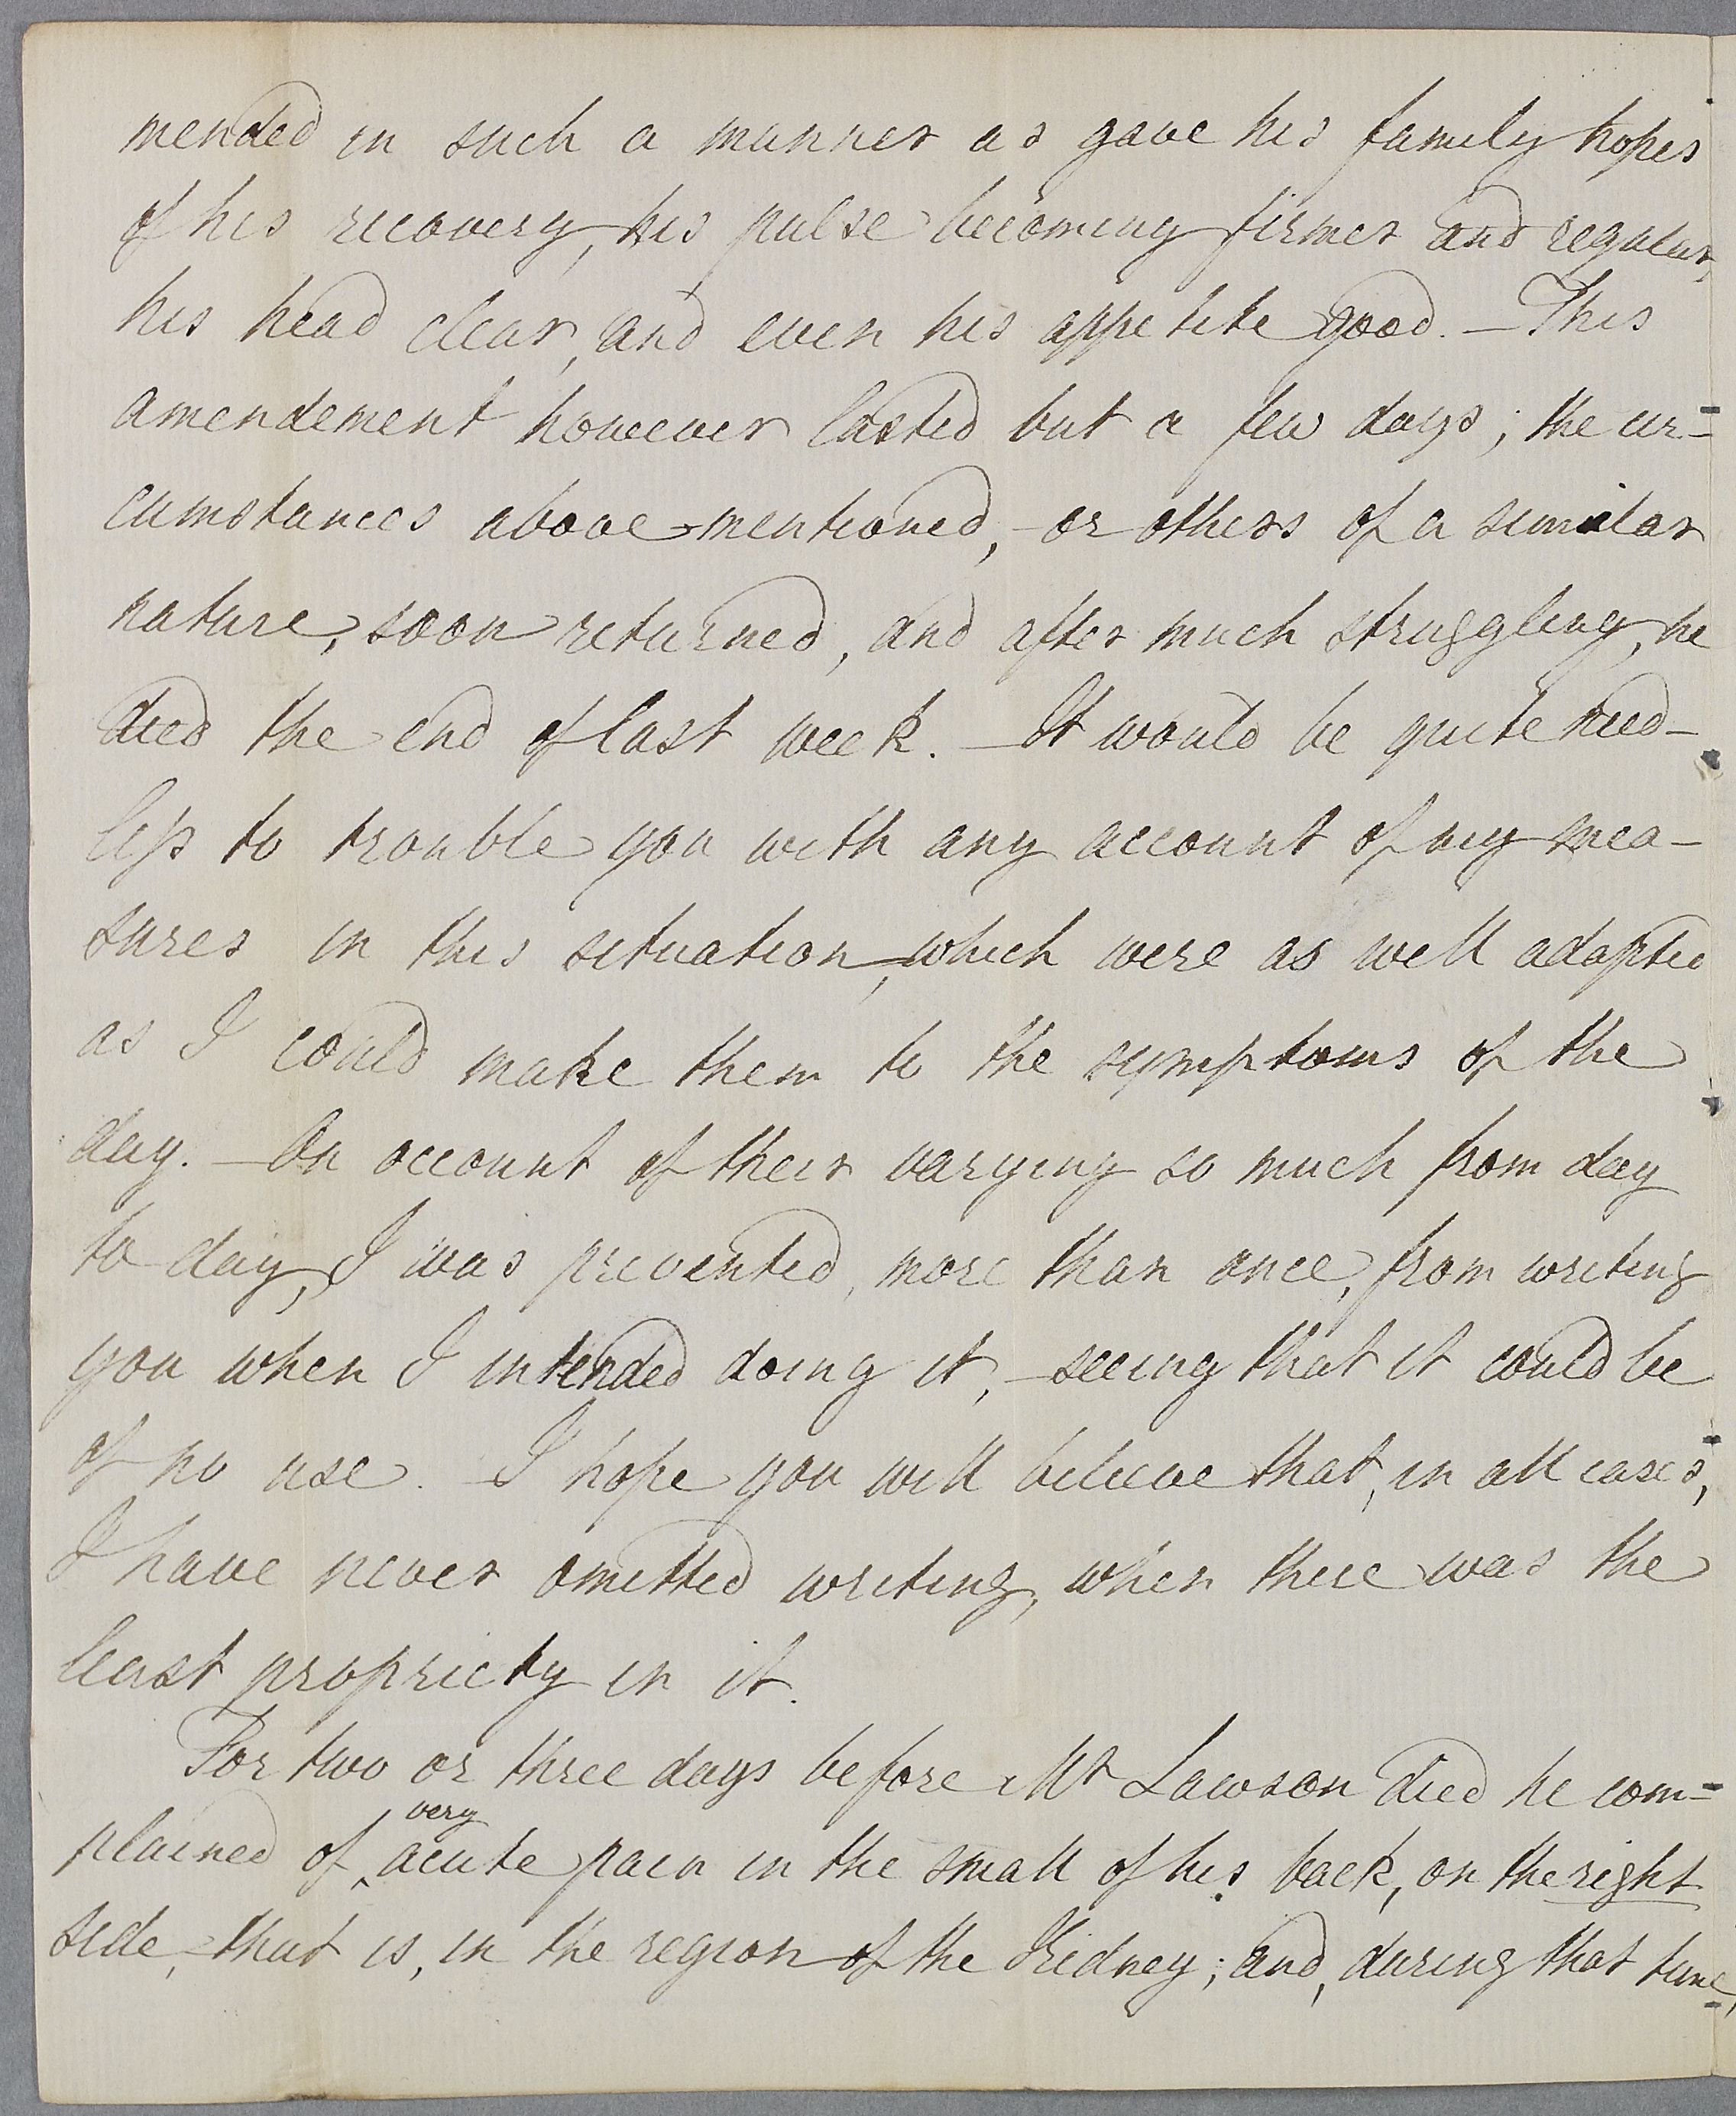 mended in such a manner as gave his family hopes
of his recovery, his pulse becoming firmer and regular,
his head clear, and even his appetite good. — This
amendement however lasted but a few days; the cir-
cumstances above-mentioned, - or others of a similar
nature, soon returned, and after much struggling, he
died the end of last week. — It would be quite need-
less to trouble you with any account of my mea-
sures in this situation, which were as well adapted
as I could make them to the symptoms of the
day. — On account of their varying so much from day
to day, I was prevented, more than once, from writing
you when I intended doing it, - seeing that it could be
of no use. — I hope you will believe that, in all cases,
I have never omitted writing, when there was the
least propriety in it.
For two or three days before Mr Lawson died he com=
plained of very acute pain in the small of his back, on the right
side, - that is, in the region of the Kidney; and, during that time,